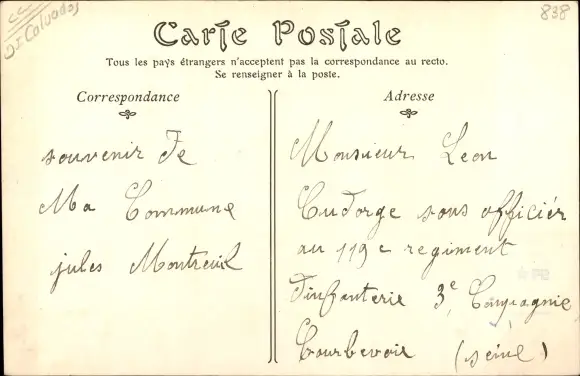 Dt Calvados
838
Carte Postale
Tous les pays étrangers n'acceptent pas la correspondance au recto.
Se renseigner à la poste.
Correspondance
souvenir De
Ma Commune
jules Montreuil
Adresse
Monsieur Leon
Cudorge sous officiér
au 119e regiment
Dinfenterie 3e Compagnie
Courbevoir (séine)